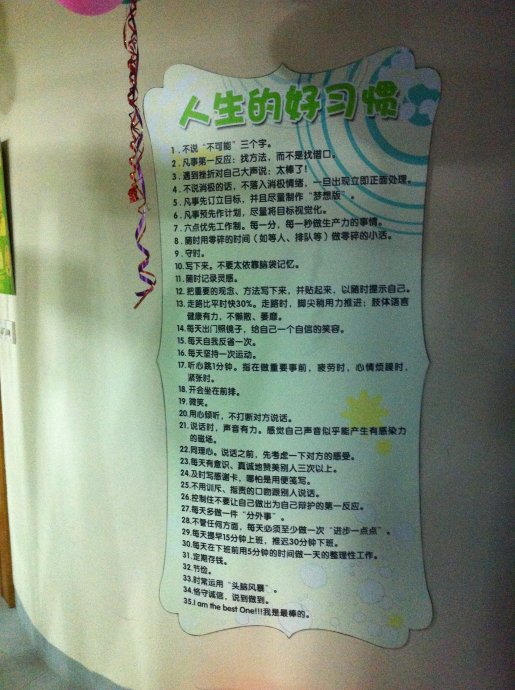 人生的好习惯
1.不说“不可能”三个字。
2.凡事第一反应：找方法，而不是找借口。
3.遇到挫折对自己大声说：太棒了！
4.不说消极的话，不落入消极情绪，一旦出现立即正面处理。
5.凡事先订立目标，并且尽量制作“梦想版”。
6.凡事预先作计划，尽量将目标视觉化。
7.六点优先工作制。每一分，每一秒做生产力的事情。
8.随时用零碎的时间（如等人、排队等）做零碎的小活。
9.守时。
10.写下来。不要太依靠脑袋记忆。
11.随时记录灵感。
12.把重要的观念、方法写下来，并贴起来，以随时提示自己。
13.走路比平时快30%。走路时，脚尖稍用力推进；肢体语言
健康有力，不懒散、萎靡。
14.每天出门照镜子，给自己一个自信的笑容。
15.每天自我反省一次。
16.每天坚持一次运动。
17.听心跳1分钟。指在做重要事前，疲劳时，心情烦躁时，
紧张时。
18.开会坐在前排。
19.微笑。
20.用心倾听，不打断对方说话。
21.说话时，声音有力。感觉自己声音似乎能产生有感染力
的磁场。
22.同理心。说话之前，先考虑一下对方的感受。
23.每天有意识、真诚地赞美别人三次以上。
24.及时写感谢卡，哪怕是用便笺写。
25.不用训斥、指责的口吻跟别人说话。
26.控制住不要让自己做出为自己辩护的第一反应。
27.每天多做一件“分外事”。
28.不管任何方面，每天必须至少做一次“进步一点点”。
29.每天提早15分钟上班，推迟30分钟下班。
30.每天在下班前用5分钟的时间做一天的整理性工作。
31.定期存钱。
32.节俭。
33.时常运用“头脑风暴”。
34.恪守诚信，说到做到。
35.I am the best One!!!我是最棒的。